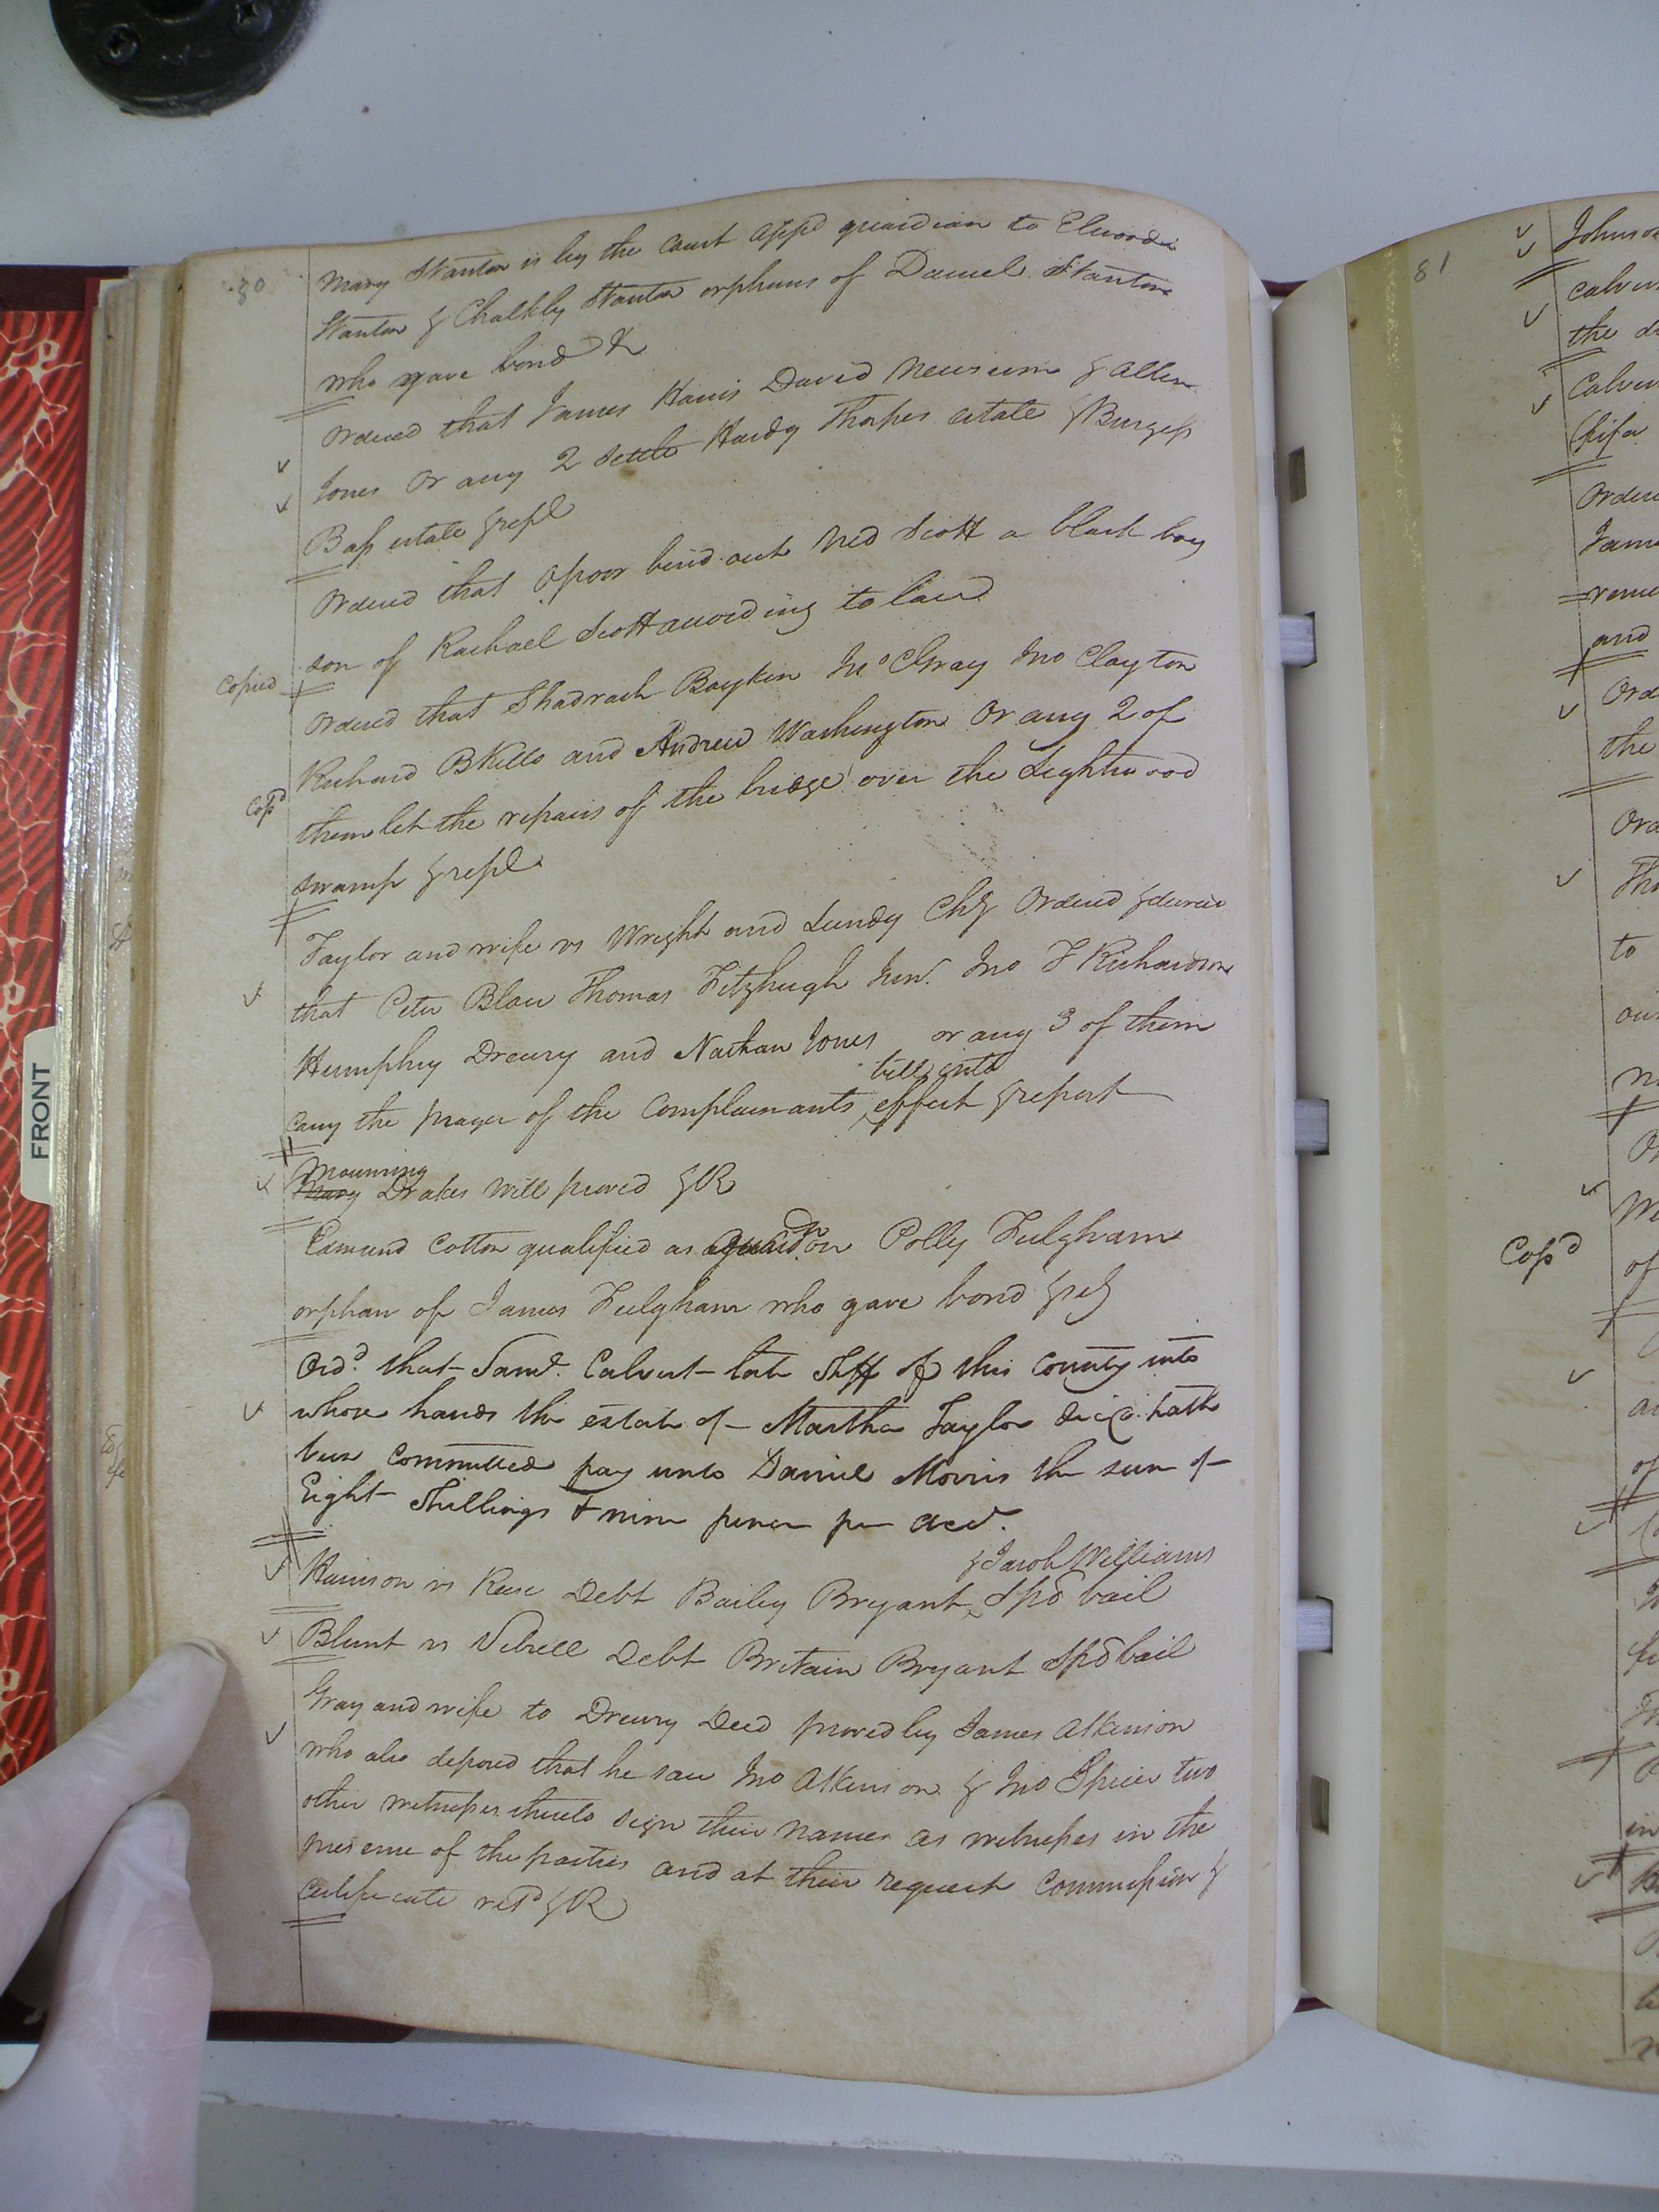 80
Mary Stanton is by the Court appd guardian to Elwood
Stanton & Chalkly Stanton orphans of Daniel Stanton
who gave bond &c
Ordered that James Harris David Newsum & Allen
Jones or any 2 settle Hardy Thorpes estate & Burgess
Bass estate & rept
Ordered that Opoor bind out Ned Scott a black boy
son of Rachael Scott according to law
Copied
Ordered that Shadrach Boykin Jno Gray Jno Clayton
Richard Kello and Andrew Washington Or any 2 of
Copd
them let the repairs of the bridge over the Lightwood
swamp & rept
Taylor and wife vs Wright and Lundy Chy Ordered & decree
that Peter Blow Thomas Fitzhugh Junr. Jno T Richardson
Humphry Drewry and Nathan Jones or any 3 of them
bill into
cary the prayer of the Complainants effect & report
Mourning
Mary Drakes will proved & R
Edmund Cotton qualified as guardn on Polly Fulgham
orphan of James Fulgham who gave bond &c
Ordd. that Saml. Calvert late Shff of this County into
whose hands the estate of Martha Taylor decd. hath
been Committed pay unto Daniel Morris the sum of
Eight Shillings & nine pence per acct.
& Jacob Williams
Harrison vs Rese Debt Bailey Bryant Spd bail
Blunt vs Vebrell Debt Britain Bryant Spd bail
Gray and wife to Drewry Deed proved by James Atkinson
who also deposed that he saw Jno Atkinson & Jno Spicer two
other witnesses thereto sign their names as witnesses in the
presence of the parties and at their request Commission &
certificate retd & R
81
Johnso
Calver
the d
Calver
fifa
Ordere
Jame
remo
and
Ord
the
Ord
Tho
to
Copd
of